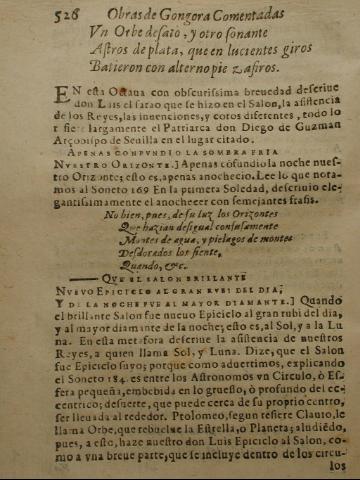 526 Obras de Gongora Comentadas
Vn Orbe desato, y otro sonante
Astros de plata, que en lucientes giros
Batieron con alterno pie zafiros.
EN esta Octaua con obscurissima breuedad descriue
don Luis el sarao que se hizo en el Salon, la asistencia
de los Reyes, las inuenciones, y coros diferentes, todo lo
refiere largamente el Patriarca don Diego de Guzman
Arçobispo de Seuilla en el lugar citado.
APENAS CONFVNDIO LA SOMBRA FRIA
NVESTRO ORIZONTE.] Apenas cõfudio la noche nues-
tro Orizonte; esto es, apenas anochecio. Lee lo que nota-
mos al Soneto 169 En la primera Soledad, descriuio ele-
gantissimamente el anochecer con semejantes frasis.
No bien, pues, de su luz los Orizontes
Que hazian desigual confusamente
Montes de agua, y pielagos de montes
Desdorados los siente,
Quando, &c.
QVE EL SALON BRILLANTE
NVEVO EPICICLO AL GRAN RVBI DEL DIA,
Y DE LA NOCHE FVE AL MAYOR DIAMANTE.] Quando
el brillante Salon fue nueuo Epiciclo al gran rubi del dia,
y al mayor diamante de la noche; esto es, al Sol, y a la Lu
na. En esta metafora descriue la asistencia de nuestros
Reyes, a quien llama Sol, y Luna. Dize, que el Salon
fue Epiciclo suyo; porque como aduertimos, explicando
el Soneto 184. es entre los Astronomos vn Circulo, ò Es-
fera pequeña, embebida en lo gruesso, ò profundo del ec-
centrico; desuerte, que puede cerca de su proprio centro,
ser lleuada al rededor. Ptolomeo, segun refiere Clauio, le
llama Orbe, que rebuelue la Estrella, o Planeta; aludiẽdo,
pues, a esto, haze nuestro don Luis Epiciclo al Salon, co-
mo a vna breue parte, que se incluye dentro de los circu-
los